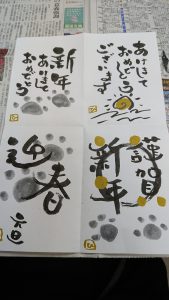 あけまして
おめでとう
ございます
新年
あけまして
おめでとう
謹賀
新年
迎春
元旦